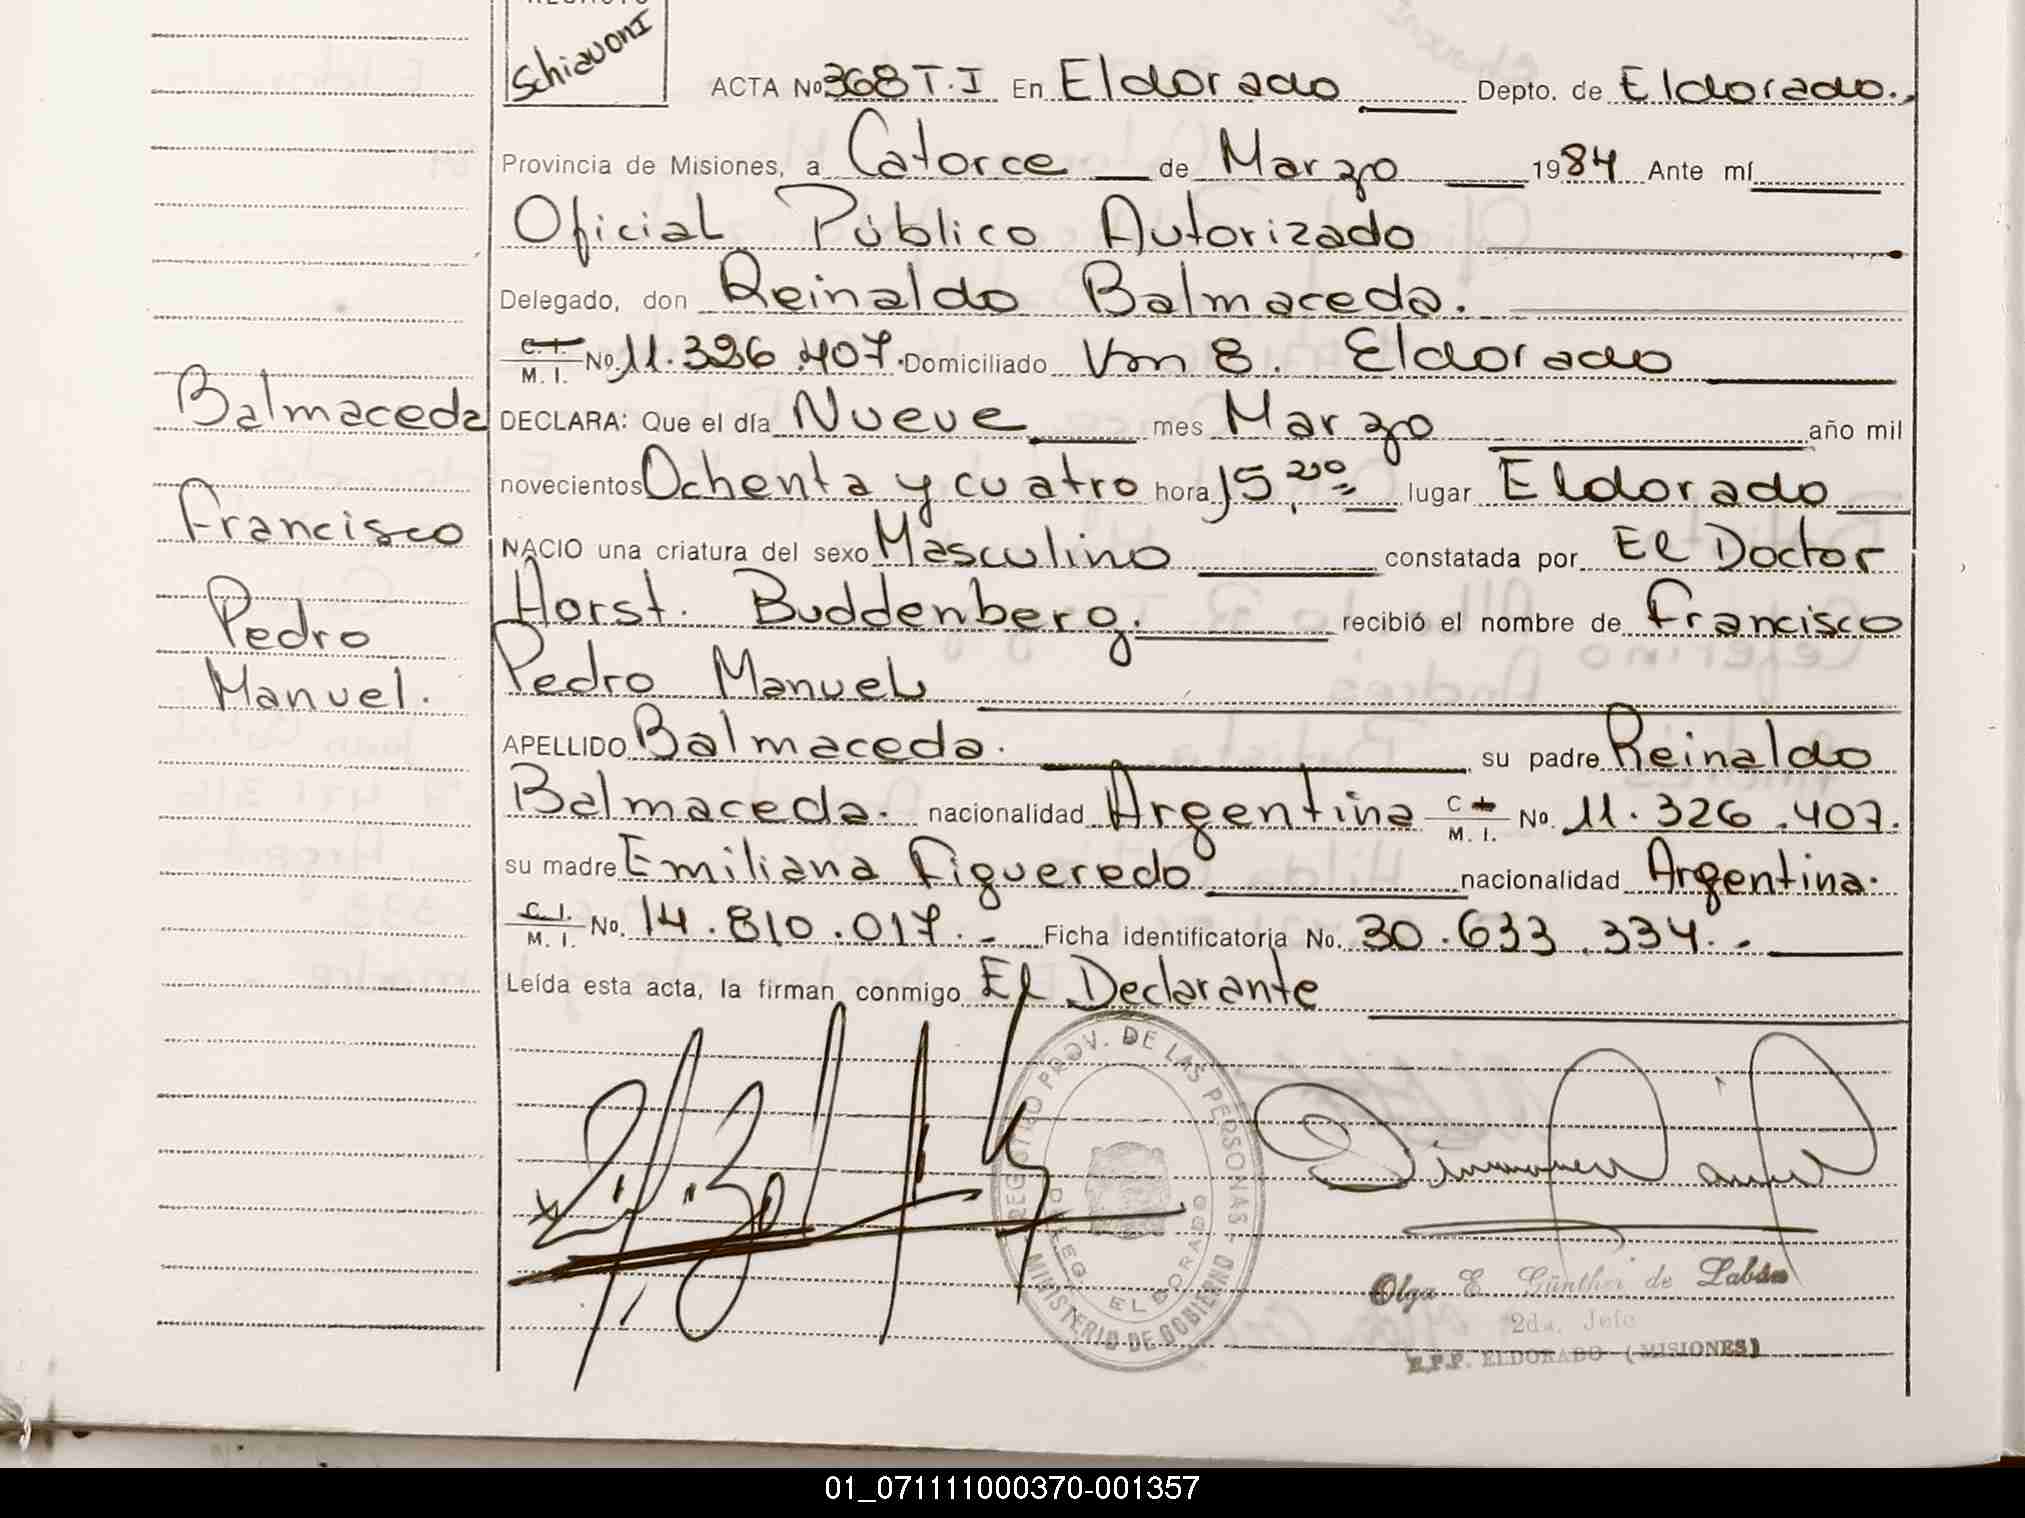 Schiavoni
ACTA No 368 T.I En Eldorado Depto. de Eldorado.,
Provincia de Misiones, a Catorce de Marzo 1984 Ante mí
Oficial Público Autorizado
Delegado, don Reinaldo Balmaceda.
C.I. M. I. No. 11.326.407. Domiciliado Km 8. Eldorado
Balmaceda
DECLARA: Que el día Nueve mes Marzo año mil
novecientos Ochenta y cuatro hora 15,20 lugar Eldorado
Francisco
NACIO una criatura del sexo Masculino constatada por El Doctor
Pedro
Horst. Buddenberg. recibió el nombre de Francisco
Manuel.
Pedro Manuel
APELLIDO Balmaceda. su padre Reinaldo
Balmaceda. nacionalidad Argentina C I M. I. No. 11.326.407.
su madre Emiliana Figueredo nacionalidad Argentina.
C.I. M. I. No. 14.810.017.- Ficha identificatoria No. 30.633.334.-
Leída esta acta, la firman conmigo El Declarante
REGISTRO PROV. DE LAS PERSONAS - MINISTERIO DE GOBIERNO
DELEG. ELDORADO
Olga E. Günther de Labán
2da. Jefe
R.P.P. ELDORADO (MISIONES)
01_071111000370-001357